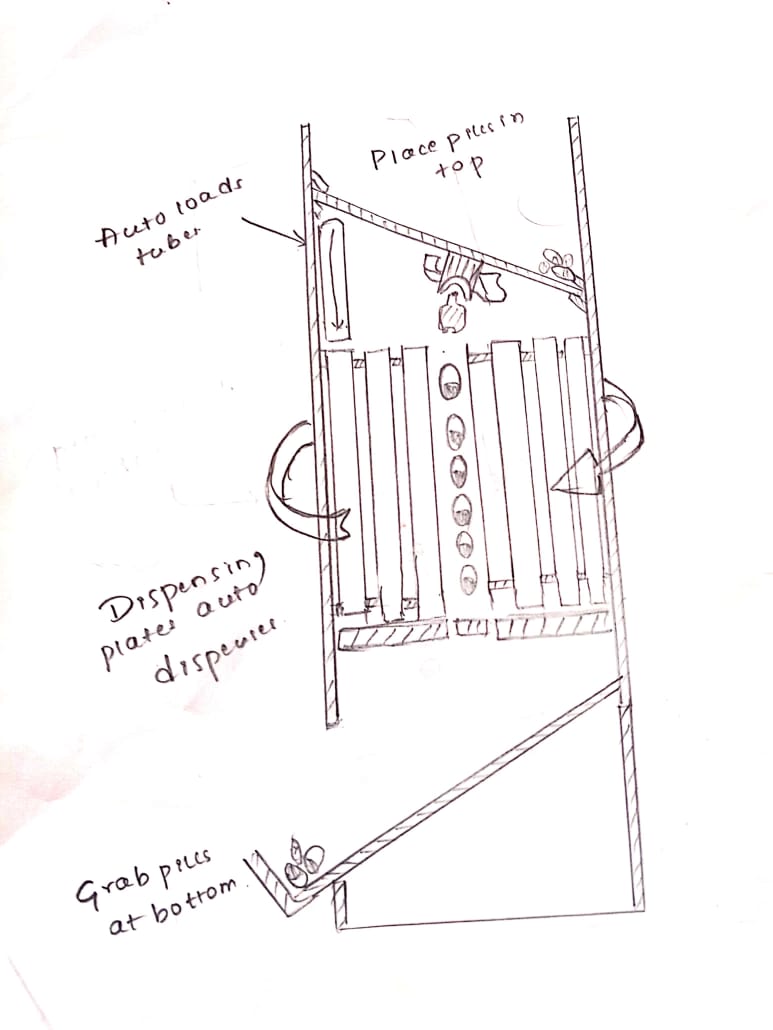 Place pills in
top
Auto loads
tubes
Dispensing
plates auto
dispenses
Grab pills
at bottom